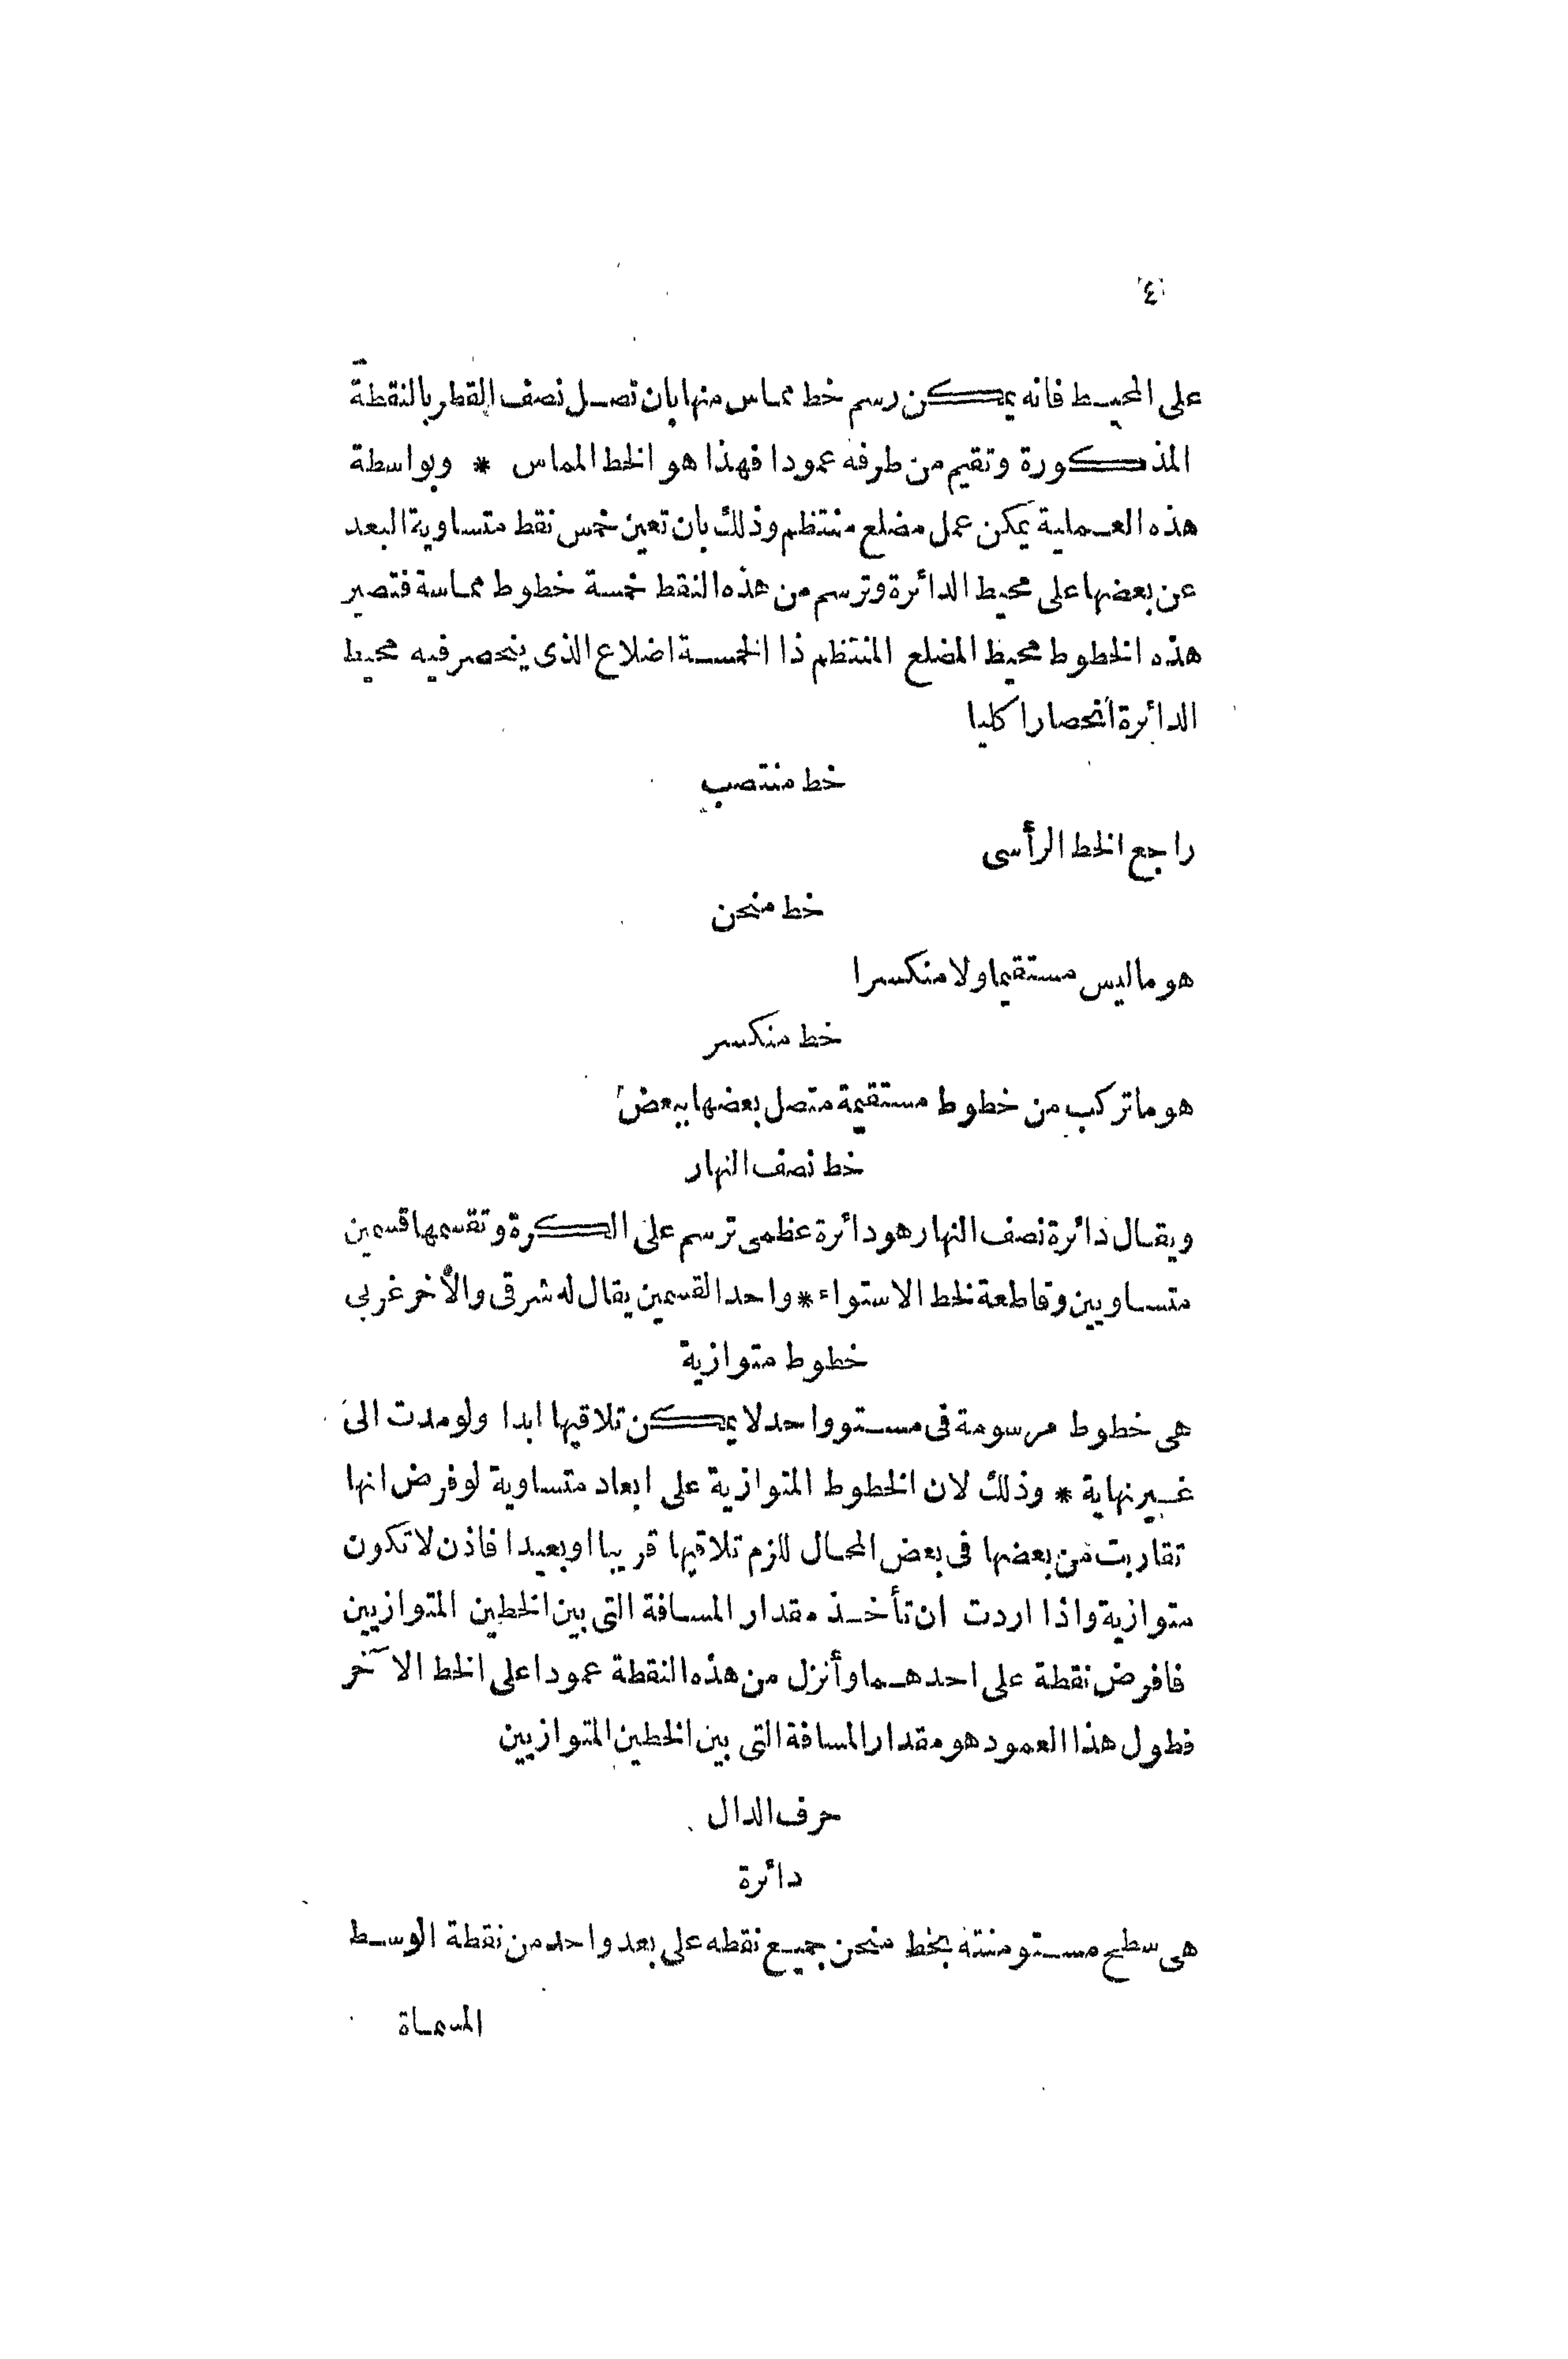 ٤
على المحيط فانه يمكن رسم خط مماس منها بان تصل نصف القطر بالنقطة
المذكورة وتقيم من طرفه عمودا فهذا هو الخط المماس * وبواسطة
هذه العملية يمكن عمل مضلع منتظم وذلك بان تعين خمس نقط متساوية البعد
عن بعضها على محيط الدائرة وترسم من هذه النقط خمسة خطوط مماسة فتصير
هذه الخطوط محيط المضلع المنتظم ذا الخمسة اضلاع الذى ينحصر فيه محيط
الدائرة انحصارا كليا
خط منتصب
راجع الخط الرأسى
خط منحن
هو ماليس مستقيما ولا منكسرا
خط منكسر
هو ما تركب من خطوط مستقيمة متصل بعضها ببعض
خط نصف النهار
ويقال دائرة نصف النهار هو دائرة عظمى ترسم على الكرة وتقسمها قسمين
متساويين وقاطعة لخط الاستواء * واحد القسمين يقال له شرقى والأخر غربى
خطوط متوازية
هى خطوط مرسومة فى مستو واحد لا يمكن تلاقيها ابدا ولو مدت الى
غير نهاية * وذلك لان الخطوط المتوازية على ابعاد متساوية لو فرض انها
تقاربت من بعضها فى بعض المحال للزم تلاقيها قريبا او بعيدا فاذن لا تكون
متوازية واذا اردت ان تأخذ مقدار المسافة التى بين الخطين المتوازيين
فافرض نقطة على احدهما وأنزل من هذه النقطة عمودا على الخط الآخر
فطول هذا العمود هو مقدار المسافة التى بين الخطين المتوازيين
حرف الدال
دائرة
هى سطح مستو منته بخط منحن جميع نقطه على بعد واحد من نقطة الوسط
المسماة